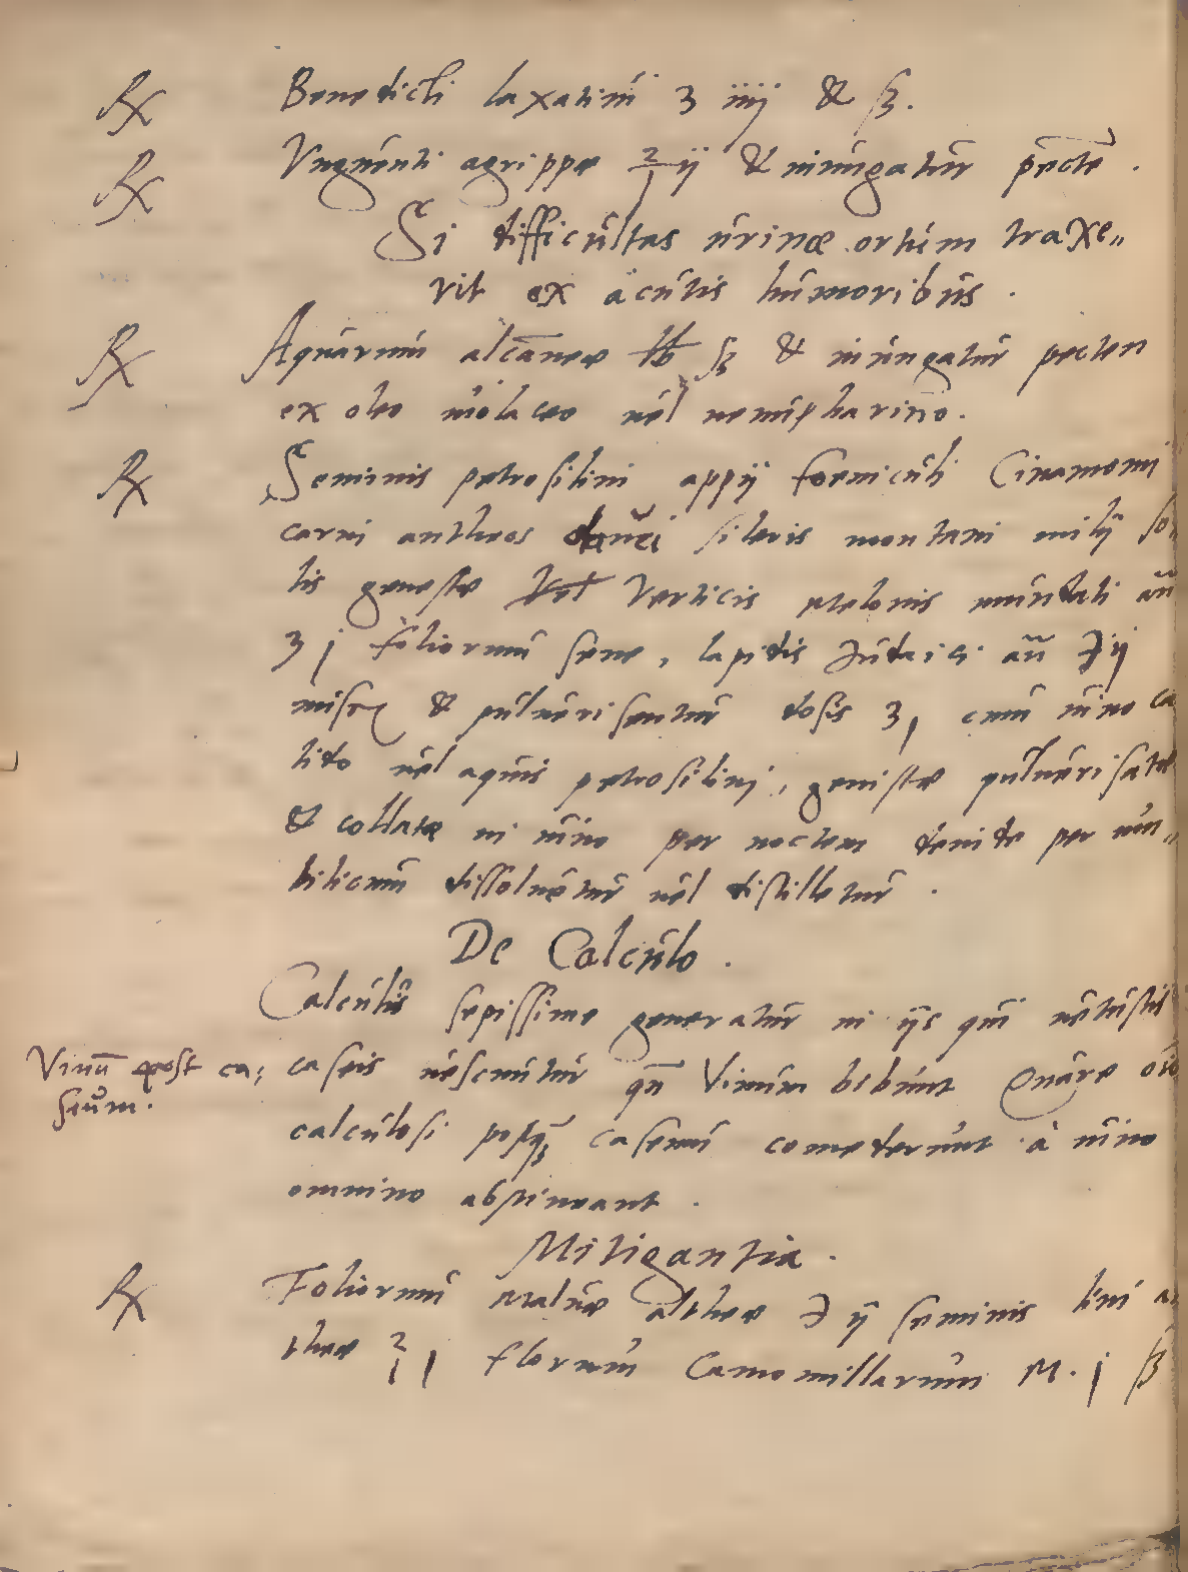 ℞ Benedicti laxatiui ʒ iiij & ß.
℞ Vnguenti agrippæ ℥ ij & inungatur pectē.
Si difficultas urinæ ortum traxe„
rit ex acutis humoribus.
℞ Aquarum alcāneæ ℔ ß & inungatur pecten
ex oleo uiolaceo uel nemupharino.
℞ Seminis petrosilini appij foeniculi Cinamomi
carui antheos dauci sileris montani milij so„
lis genestæ Vel Verticis Melonis mundati añ
ʒ j foliorum sene, lapidis Iudaici añ ℈ ij
misce & puluerisentur dosis ʒ j cum uino ca
lido uel aquis petrosilini, genistæ puluerisatæ
& collatæ in uino per noctem deinde per um„
bilicum dissoluētur uel distilletur.
De Calculo.
Calculus sepissime generatur in ijs qui uetustis
Vinū post ca;
seum.
caseis uescuntur qñ Vinum bibunt Quare oēs
calculosi postq̄ caseum comederunt à uino
omnino abstineant.
Mitigantia.
℞ Foliorum Maluæ altheæ ℈ ij seminis lini al
theæ ℥ j florum Camomillarum M. j ß